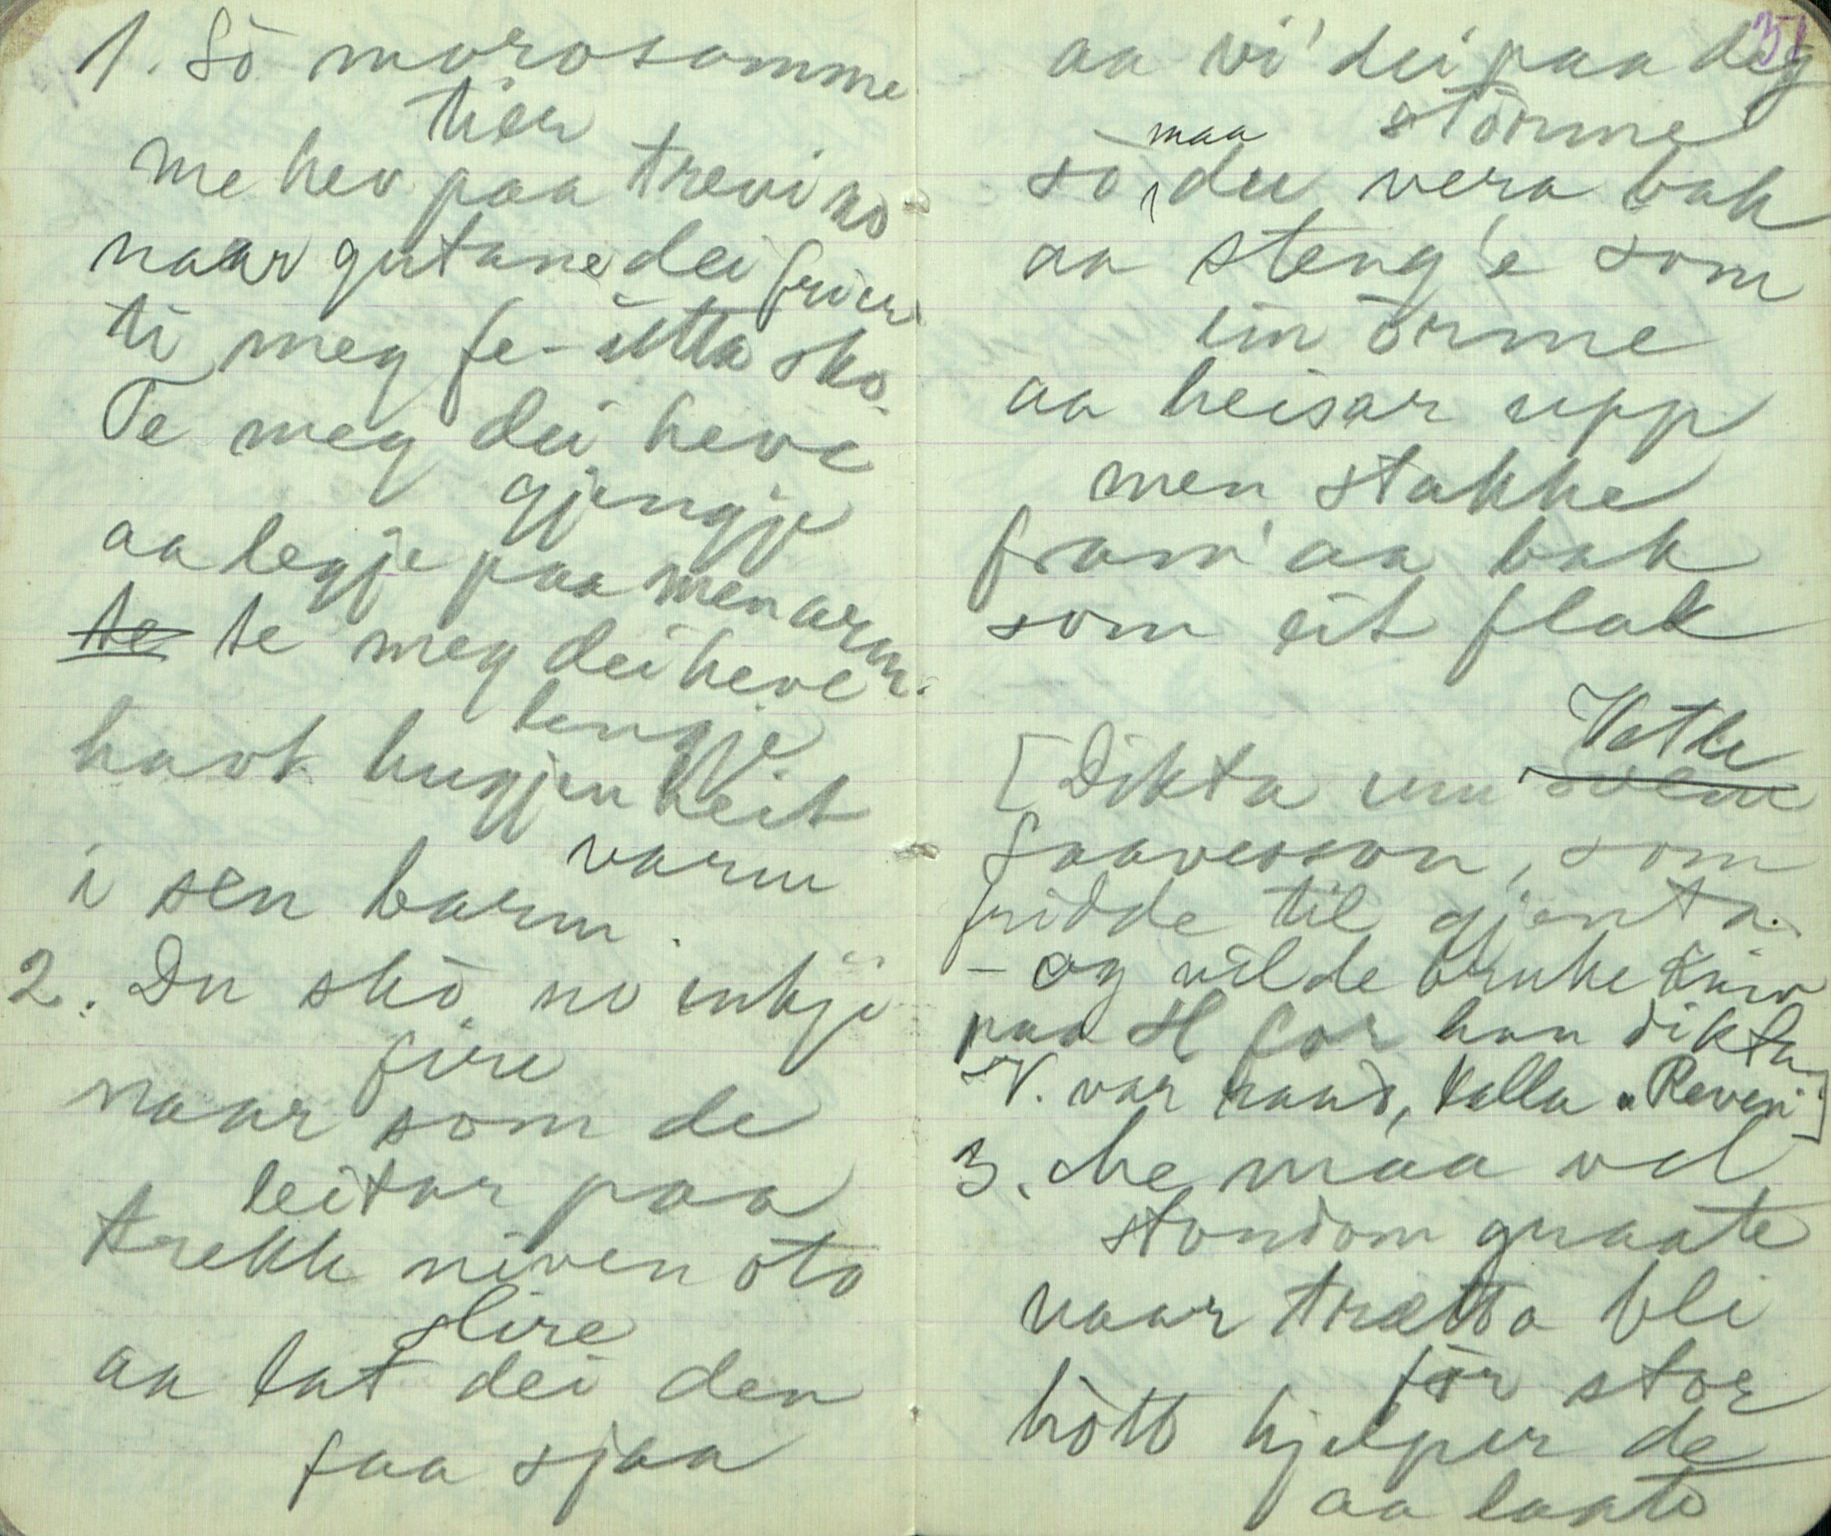 1. Sò morosamme
tier
me hev paa trevi no
naar gutane dei frier
ti meg fe-utta sko.
Te meg dei heve
gjengje
aa legje paa men arm.
te te meg dei heve
lengje
havt hugjen heit
varm
i sen barm.
2. Du skò no inkji
fire
naar som de
leitar paa
trekk niven oto
slire
aa lat dei den
faa sjaa
31
aa vi' dei paa deg
störme
sò maa du vera bak
aa steng'e som
ein örme
aa heisar upp
men stakke
fram' aa bak
som eit flak
[Dikta um Vetle
Saaveson, som
fridde til gjenta.
- og vilde bruke kniv
paa H for han dikta
V. var raud, kalla "Reven"]
3. Me maa vel
stondom graate
naar trætta bli
før stor
hòtt hjelper de
aa laate